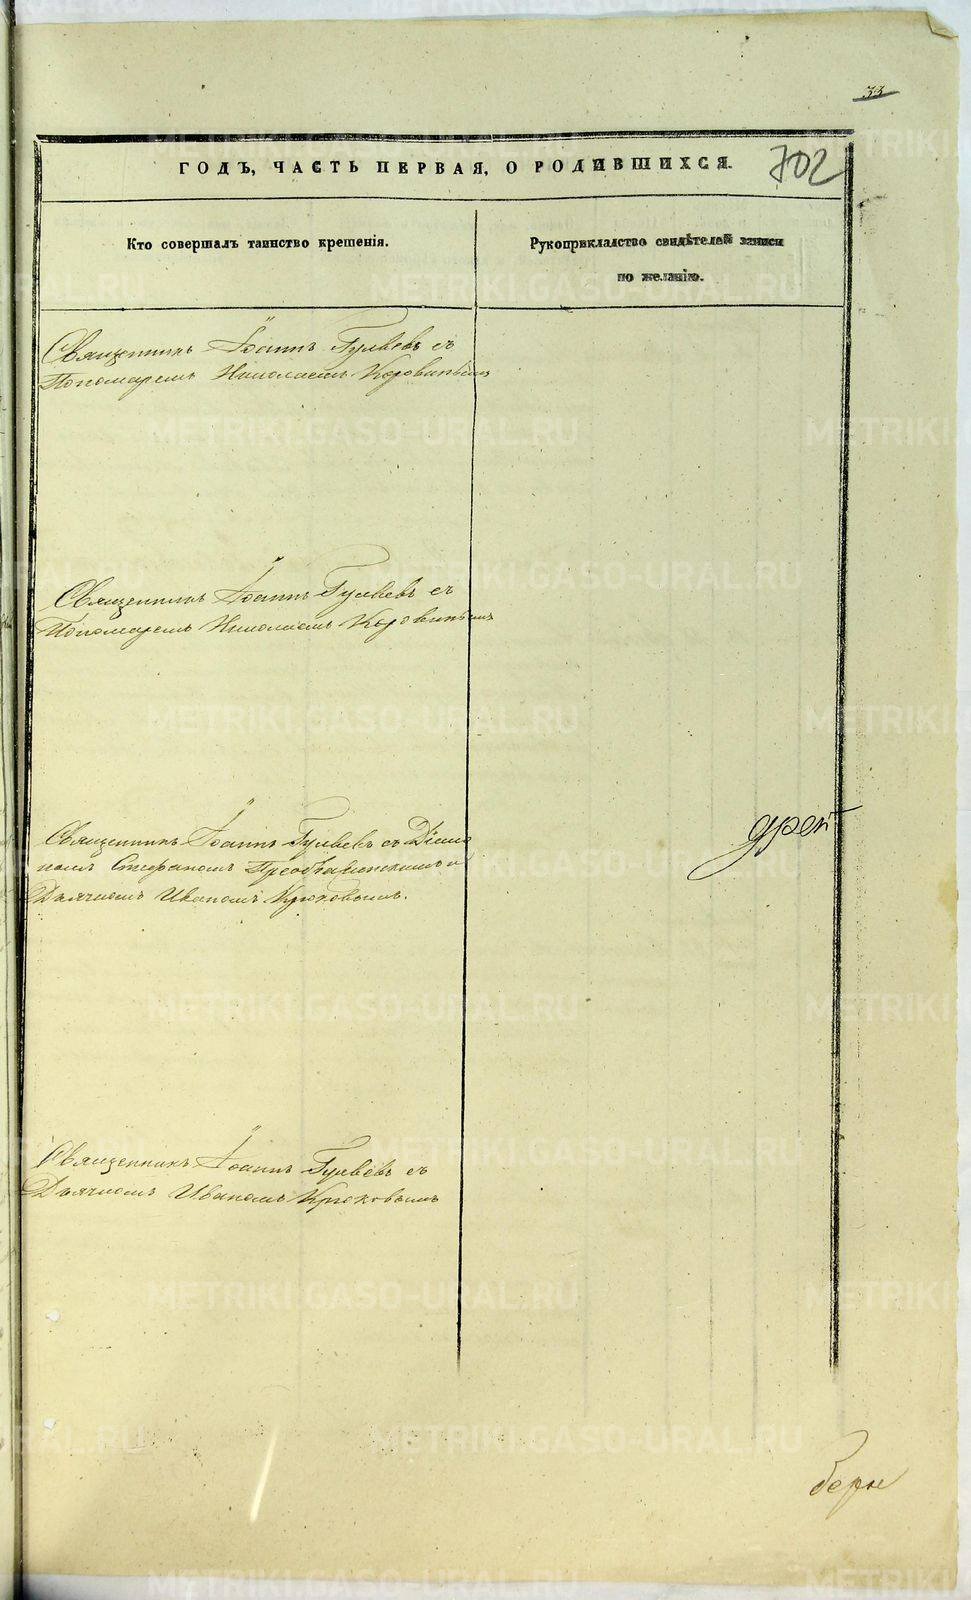 33
ГОДЪ, ЧАСТЬ ПЕРВАЯ, О РОДИВШИХСЯ.
702
Кто совершалъ таинство крещенія.
Рукоприкладство свидѣтелей записи
по желанію.
Священникъ Іоаннъ Гуляевъ съ
Пономаремъ Николаемъ Коровинымъ
Священникъ Іоаннъ Гуляевъ съ
Пономаремъ Николаемъ Коровинымъ
Священникъ Іоаннъ Гуляевъ съ Діако
номъ Стефаномъ Преображенскимъ и
Дьячкомъ Иваномъ Крюковымъ.
Священникъ Іоаннъ Гуляевъ съ
Дьячкомъ Иваномъ Крюковымъ
METRIKI.GASO-URAL.RU